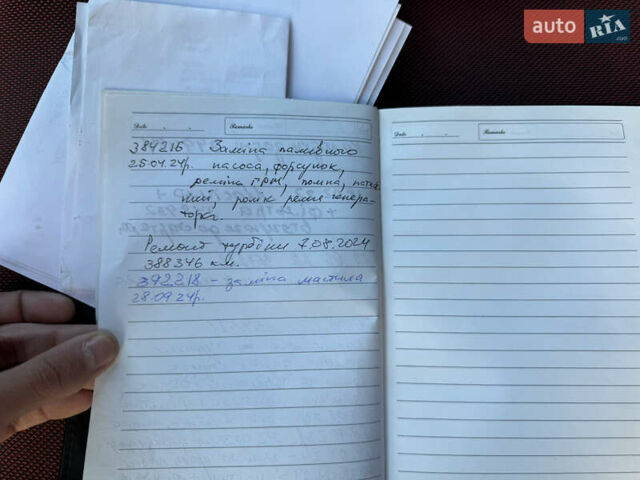 auto RIA.com
Date . . Remarks
Date . . Remarks
384216 Заміна паливного
25.04.24р. насоса, форсунок,
реміня ГРМ, помпа, натяж
ний, ролік ремія генера-
торa.
Ремонт турбіни 7.08.2024
388346 км.
392218 - заміна мастила
28.09.24р.